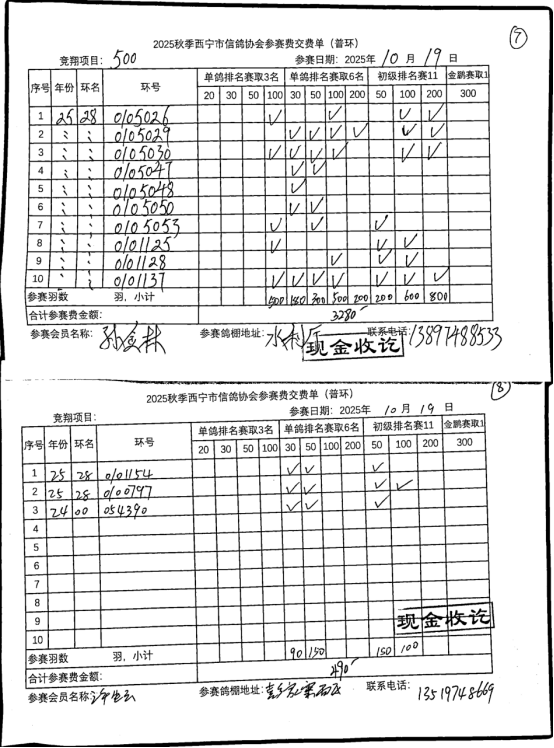 ⑦
2025秋季西宁市信鸽协会参赛费交费单（普环）
竞翔项目: 500 参赛日期: 2025年 10 月 19 日
序号 年份 环名 环号 单鸽排名赛取3名 单鸽排名赛取6名 初级排名赛11 金鹏赛取1
20 30 50 100 30 50 100 200 50 100 200 300
1 25 28 0105026 ✓ ✓ ✓ ✓
2 、 、 0105029 ✓ ✓ ✓ ✓ ✓ ✓
3 、 、 0105030 ✓ ✓ ✓ ✓ ✓ ✓
4 、 、 0105047 ✓ ✓
5 、 、 0105048 ✓
6 、 、 0105050 ✓ ✓
7 、 、 0105053 ✓ ✓ ✓
8 、 、 0101125 ✓ ✓ ✓
9 、 、 0101128 ✓ ✓ ✓
10 、 、 0101137 ✓ ✓ ✓ ✓ ✓ ✓ ✓
参赛羽数 羽, 小计 500 180 300 500 200 200 600 800
合计参赛费金额: 3280
参赛会员名称: 参赛鸽棚地址: 联系电话: 13897488533
现金收讫
⑧
2025秋季西宁市信鸽协会参赛费交费单（普环）
竞翔项目: 参赛日期: 2025年 10 月 19 日
序号 年份 环名 环号 单鸽排名赛取3名 单鸽排名赛取6名 初级排名赛11 金鹏赛取1
20 30 50 100 30 50 100 200 50 100 200 300
1 25 28 0101154 ✓ ✓ ✓
2 25 28 0100797 ✓ ✓ ✓ ✓
3 24 00 054390 ✓ ✓ ✓
4
5
6
7
8
9
10
现金收讫
参赛羽数 羽, 小计 90 150 150 100
合计参赛费金额: 490
参赛会员名称: 参赛鸽棚地址: 联系电话: 13519748669